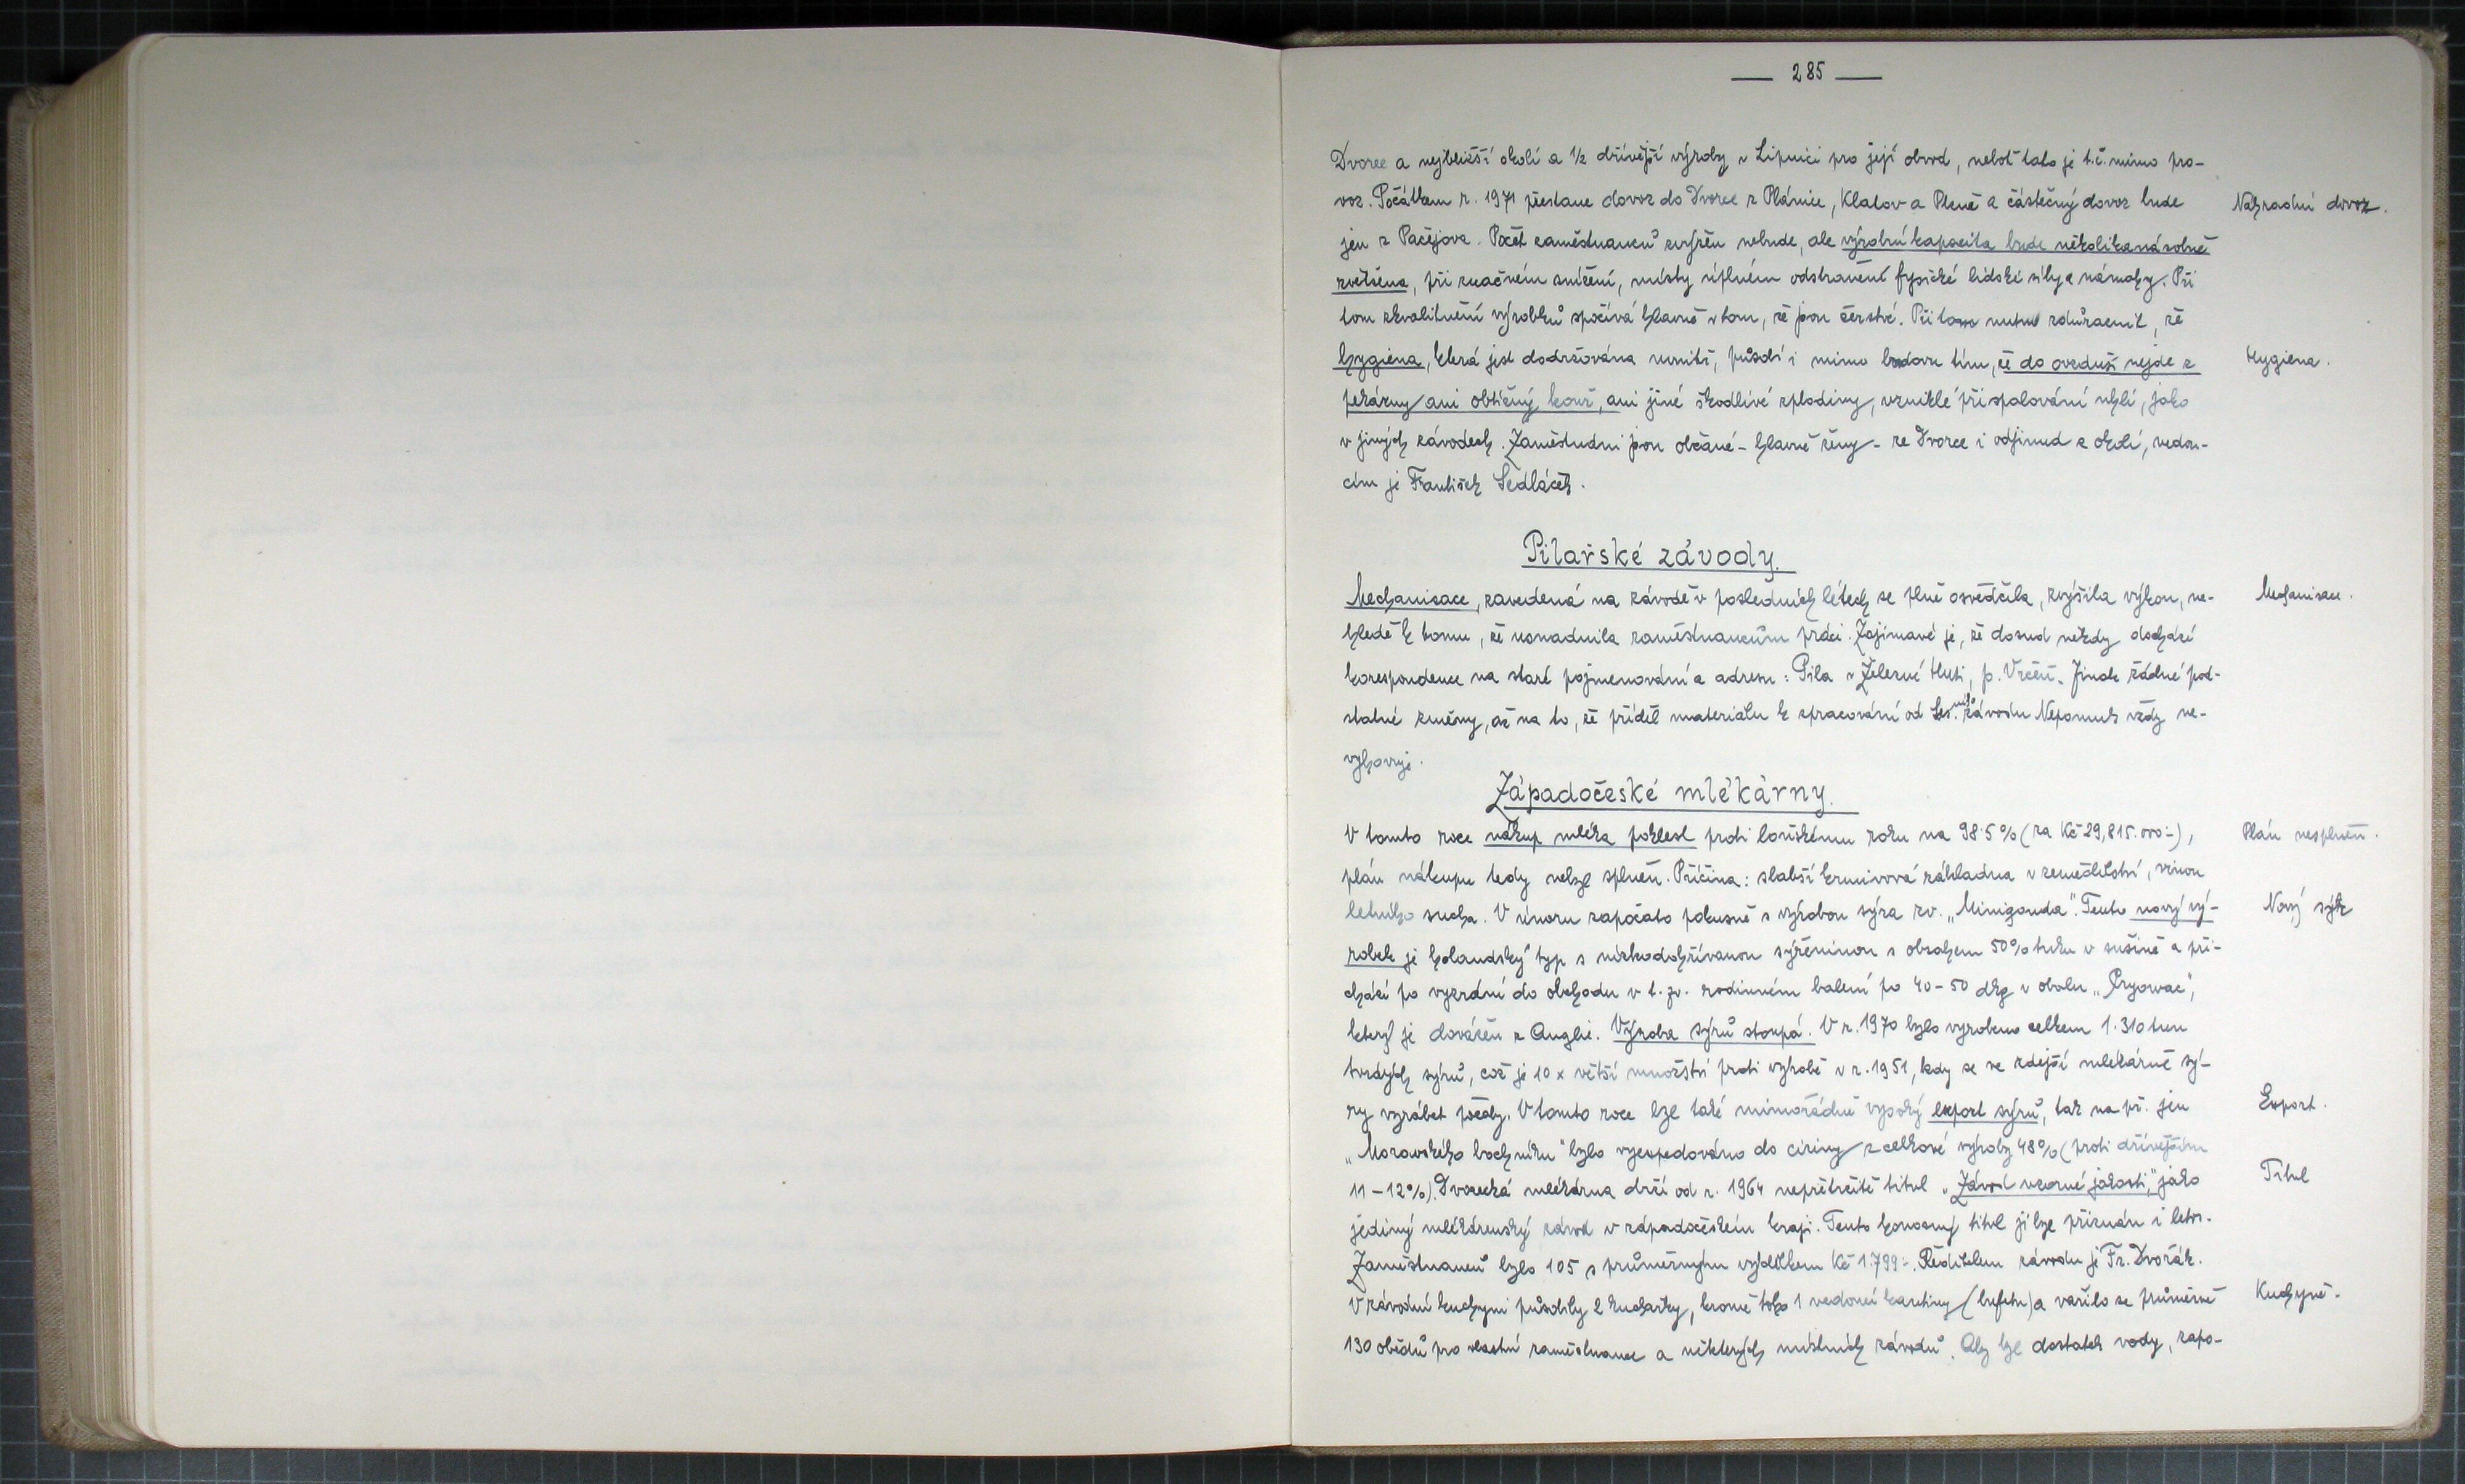 — 285 —
Dvorec a nejbližší okolí a 1/2 dřívější výroby v Lipnici pro její obvod, neboť tato je t.č. mimo pro-
voz. Počátkem r. 1971 přestane dovoz do Dvorce z Plánice, Klatov a Plzně a částečný dovoz bude
Náhradní dovoz.
jen z Pačejova. Počet zaměstnanců zvýšen nebude, ale výrobní kapacita bude několikanásobně
zvětšena, při značném snížení, místy úplném odstranění fysické lidské síly a námahy. Při
tom zkvalitnění výrobků spočívá hlavně v tom, že jsou čerstvé. Přitom nutno zdůraznit, že
hygiena, která jest dodržována uvnitř, působí i mimo budovu tím, že do ovzduší nejde z
Hygiena.
pekárny ani obtížný kouř, ani jiné škodlivé zplodiny, vzniklé při spalování uhlí, jako
v jiných závodech. Zaměstnáni jsou občané - hlavně ženy - ze Dvorce i odjinud z okolí, vedou-
cím je František Sedláček.
Pilařské závody.
Mechanisace, zavedená na závodě v posledních létech se plně osvědčila, zvýšila výkon, ne-
Mechanisace.
hledě k tomu, že usnadnila zaměstnancům práci. Zajímavé je, že dosud někdy dochází
korespondence na staré pojmenování a adresu: Pila v Železné Huti, p. Vrčeň. Jinak žádné pod-
statné změny, až na to, že příděl materiálu k zpracování od Les.ního závodu Nepomuk vždy ne-
vyhovuje.
Západočeské mlékárny.
V tomto roce nákup mléka poklesl proti loňskému roku na 98·5% (za Kč 29,815.000·-),
Plán nesplněn.
plán nákupu tedy nebyl splněn. Příčina: slabší krmivová základna v zemědělství, vinou
letního sucha. V únoru započato pokusně s výrobou sýra zv. „Minigouda". Tento nový vý-
Nový sýr
robek je holandský typ s nízkodohřívanou sýřeninou s obsahem 50% tuku v sušině a při-
chází po vyzrání do obchodu v t. zv. rodinném balení po 40-50 dkg v obalu „Cryovac",
který je dovážen z Anglie. Výroba sýrů stoupá. V r. 1970 bylo vyrobeno celkem 1.310 tun
tvrdých sýrů, což je 10 x větší množství proti výrobě v r. 1951, kdy se ve zdejší mlékárně sý-
ry vyrábět počaly. V tomto roce byl také mimořádně vysoký export sýrů, tak na př. jen
Export.
„Moravského bochníku" bylo vyexpedováno do ciziny z celkové výroby 48% (proti dřívějším
11-12%). Dvorecká mlékárna drží od r. 1964 nepřetržitě titul „Závod vzorné jakosti", jako
Titul
jediný mlékárenský závod v západočeském kraji. Tento honosný titul jí byl přiznán i letos.
Zaměstnanců bylo 105 s průměrným výdělkem Kč 1.799·-. Ředitelem závodu je Fr. Dvořák.
V závodní kuchyni působily 2 kuchařky, kromě toho 1 vedoucí kantiny (bufetu) a vařilo se průměrně
Kuchyně.
130 obědů pro vlastní zaměstnance a některých místních závodů. Aby byl dostatek vody, zapo-